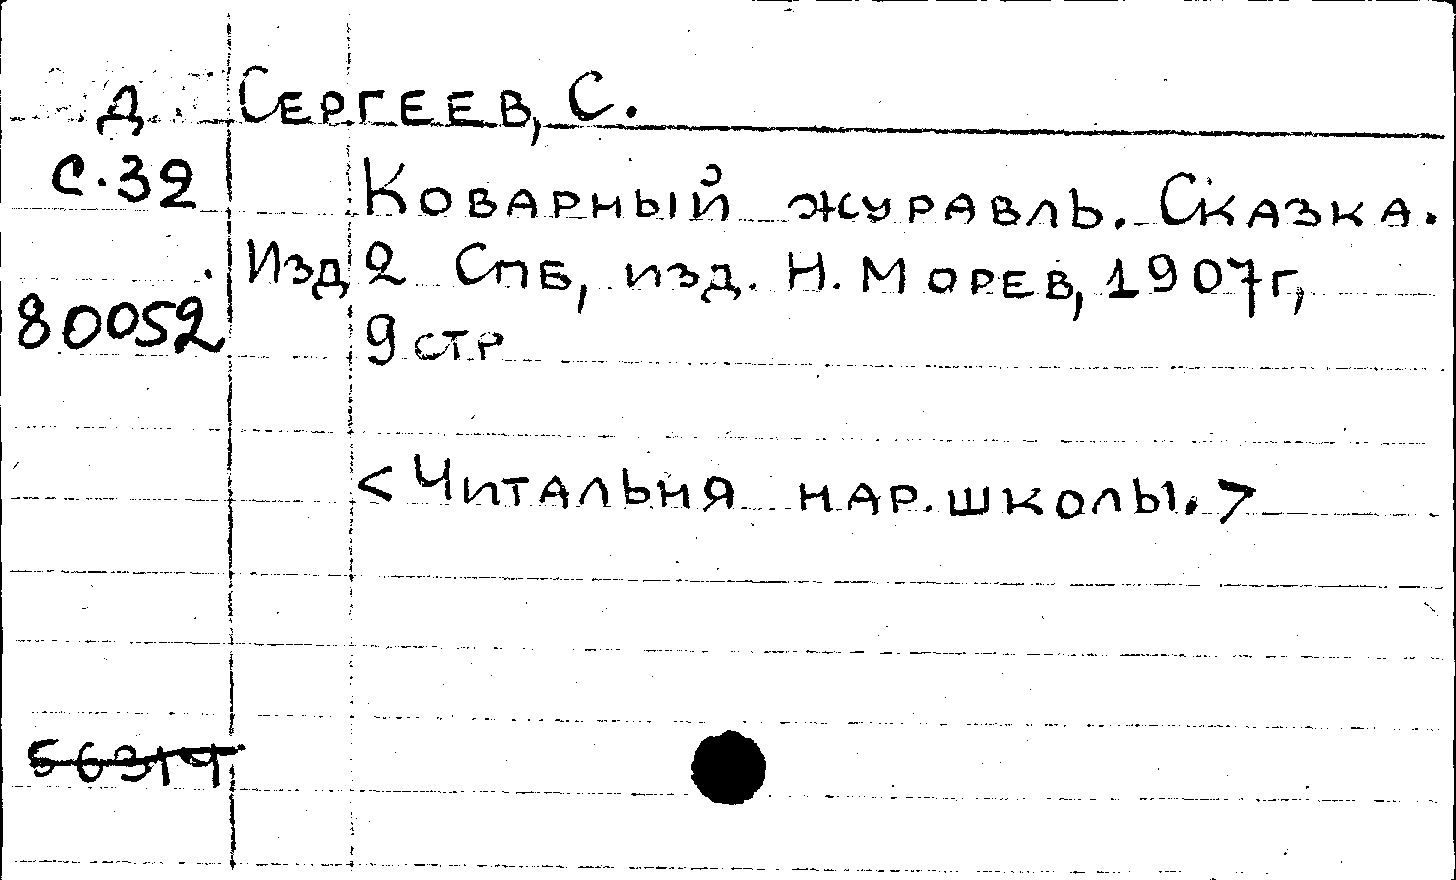 Д Сергеев, С.
С.32 Коварный журавль. Сказка.
Изд 2 СПБ, изд. Н. Морев, 1907г,
80052 9 стр
<Читальня нар. школы.>
56314